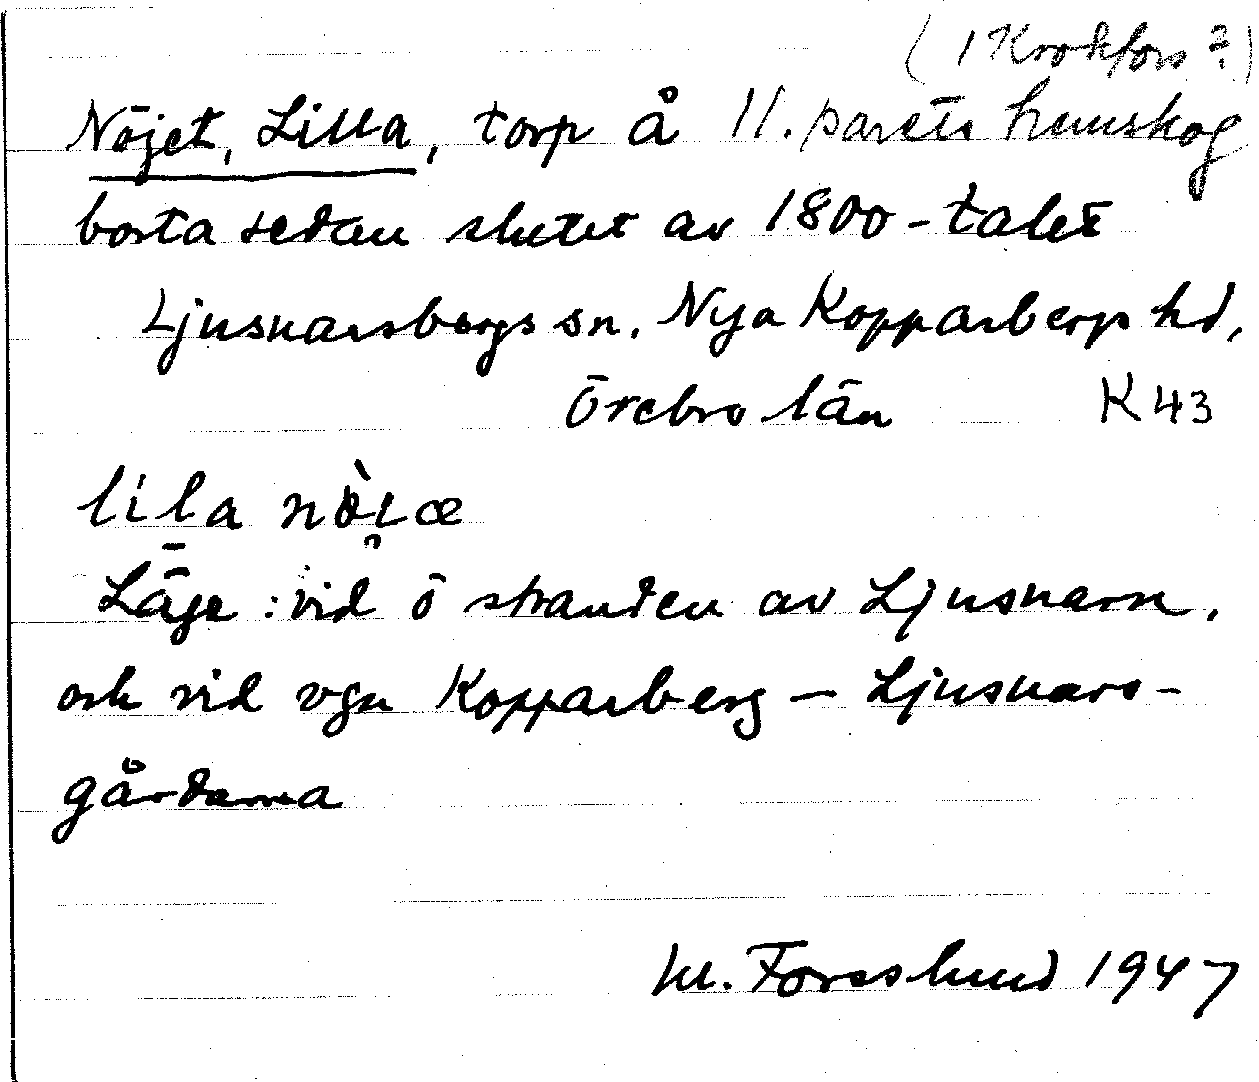 ( 1 Krokfors ? )
Nöjet, Lilla, torp å 11. parets hemskog
borta sedan slutet av 1800-talet
Ljusnarsbergs sn. Nya Kopparbergs hd,
Örebro län K 43
lila
Läge : vid ö stranden av Ljusnaren,
och vid vgn Kopparberg – Ljusnars-
gårdarna
M. Forsslund 1947